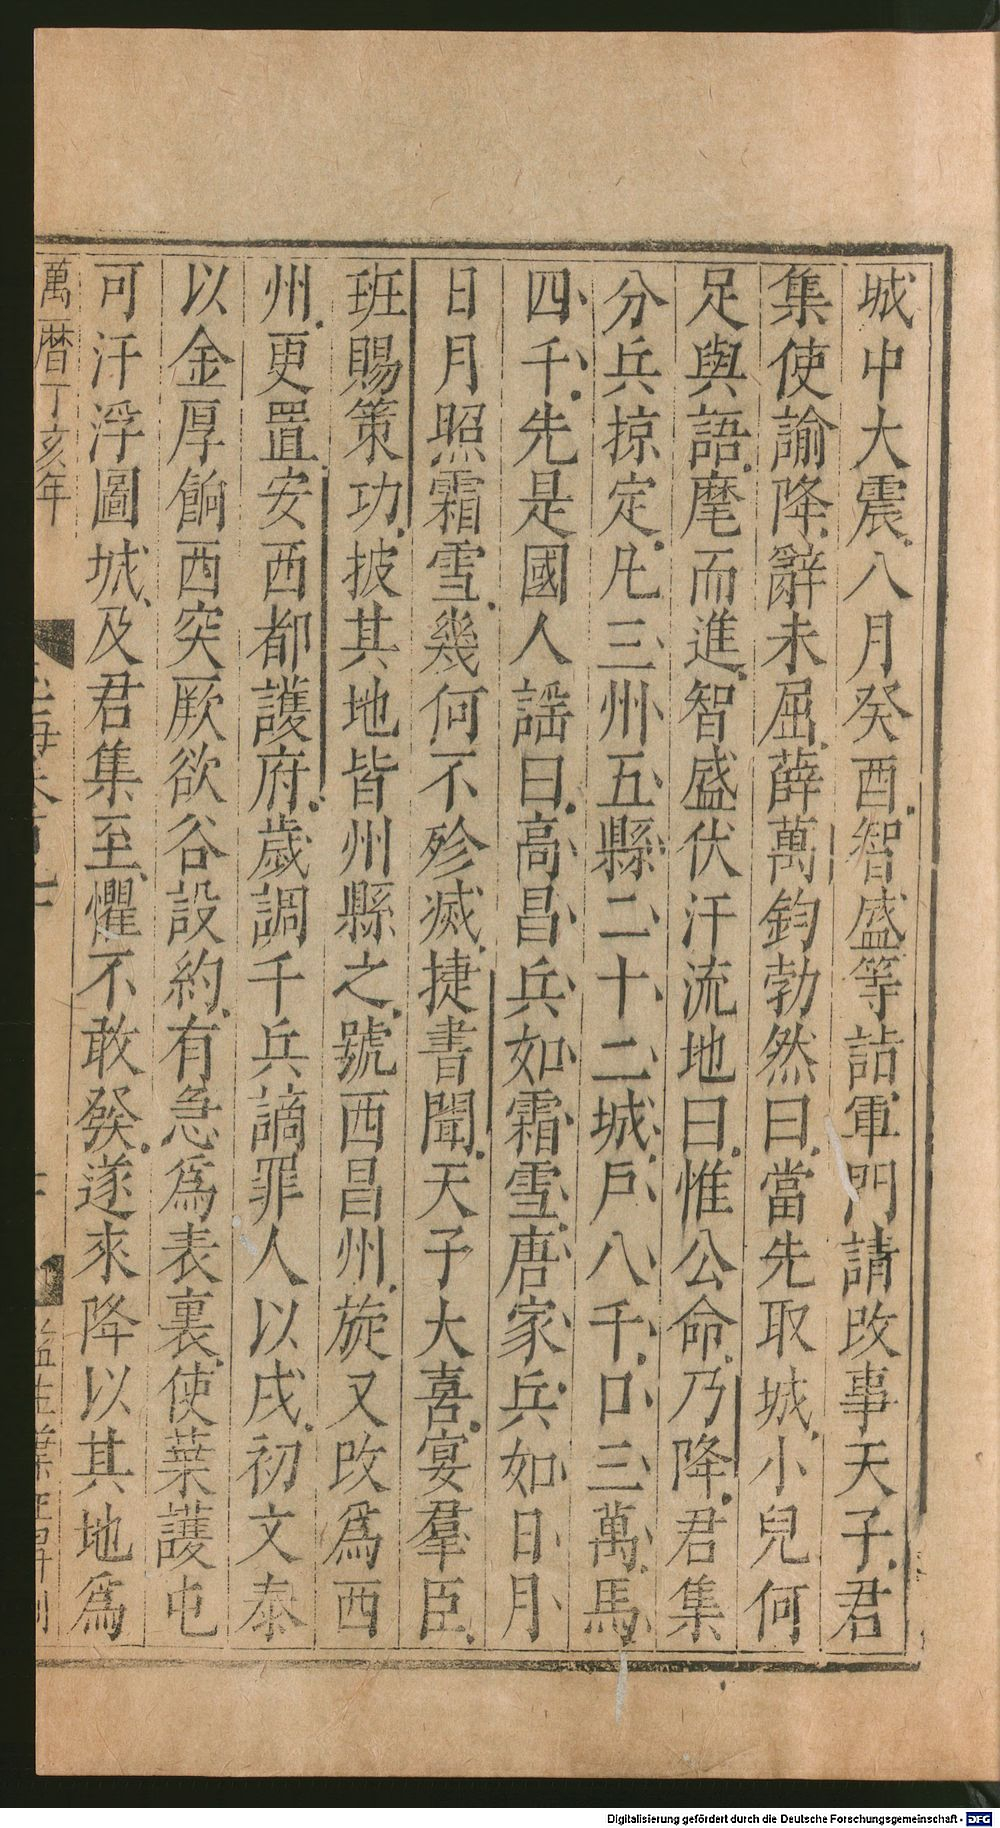 城中大震八月癸酉智盛等詣軍門請改事天子君
集使諭降辭未屈薛萬鈞勃然曰當先取城小兒何
足與語麾而進智盛伏汗流地曰惟公命乃降君集
分兵掠定凡三州五縣二十二城戶八千口三萬馬
四千先是國人謡曰高昌兵如霜雪唐家兵如日月
日月照霜雪幾何不殄滅捷書聞天子大喜宴羣臣
班賜策功披其地皆州縣之號西昌州旋又改爲西
州更置安西都護府歲調千兵謫罪人以戍初文泰
以金厚餉西突厥欲谷設約有急爲表裏使葉護屯
可汗浮圖城及君集至懼不敢發遂來降以其地爲
萬曆丁亥年
Digitalisierung gefördert durch die Deutsche Forschungsgemeinschaft - DFG